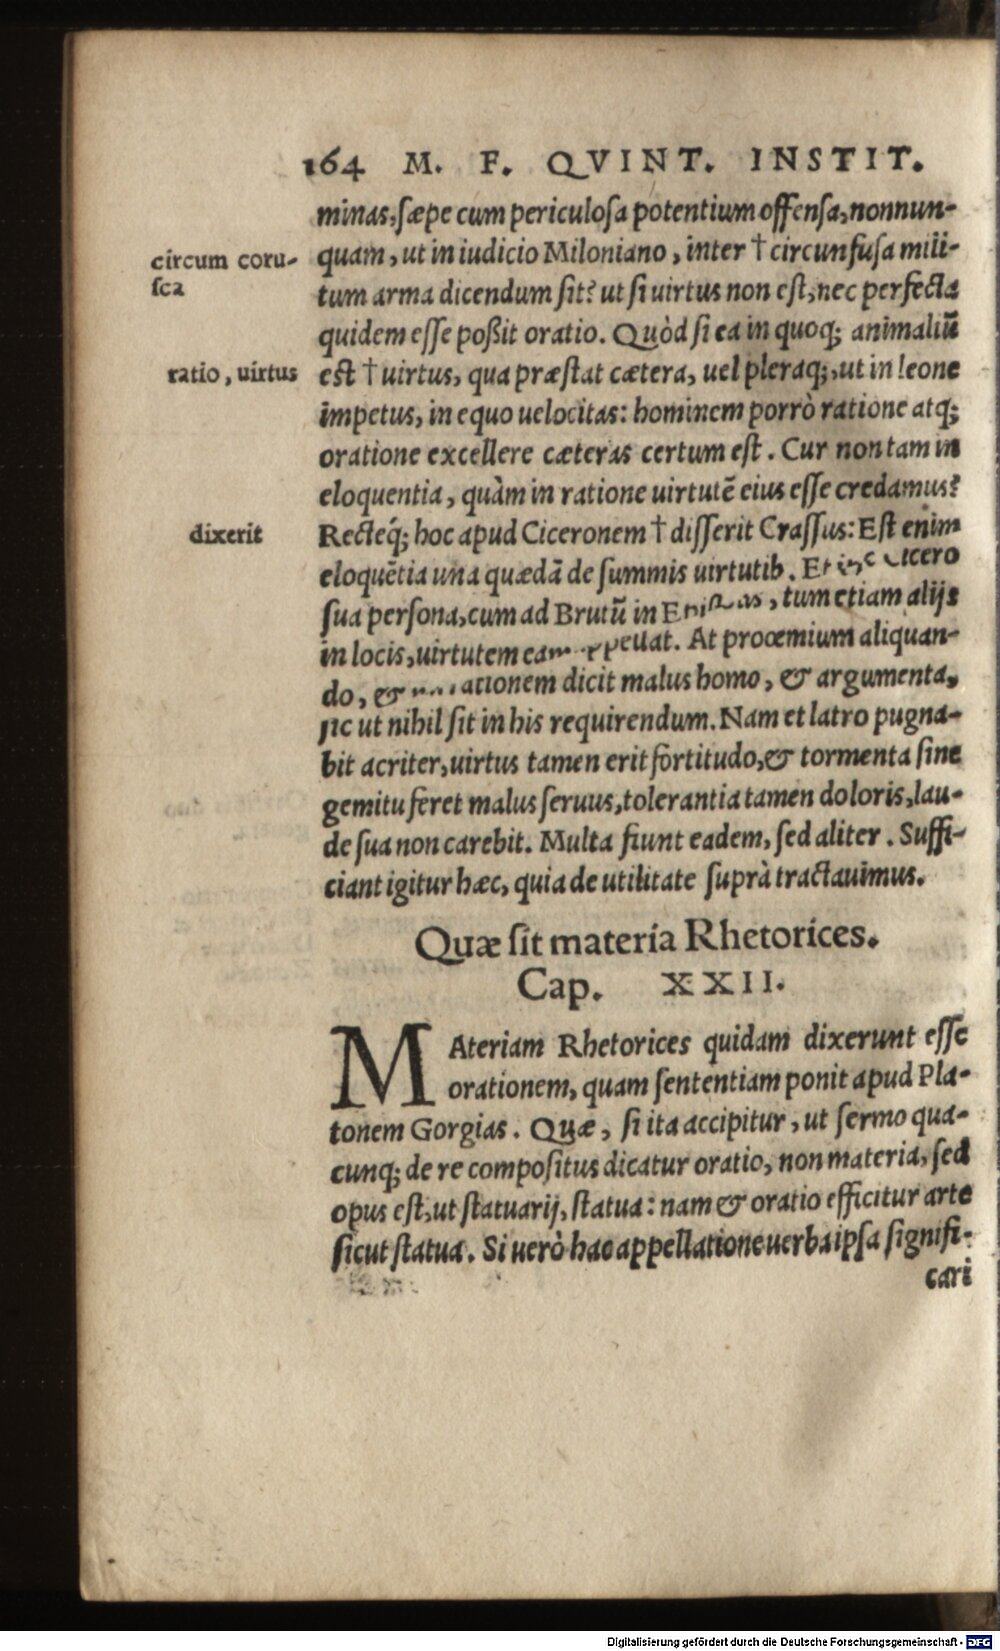 164 M. F. QVINT. INSTIT.
minas, sæpe cum periculosa potentium offensa, nonnun-
quam, ut in iudicio Miloniano, inter † circunfusa mili-
circum coru-
sca
tum arma dicendum sit? ut si uirtus non est, nec perfecta
quidem esse poßit oratio. Quòd si ea in quoq; animaliū
ratio, uirtus
est † uirtus, qua præstat cætera, uel pleraq;, ut in leone
impetus, in equo uelocitas: hominem porrò ratione atq;
oratione excellere cæteras certum est. Cur non tam in
eloquentia, quàm in ratione uirtutē eius esse credamus?
dixerit
Recteq́; hoc apud Ciceronem † disserit Crassus: Est enim
eloquētia una quædā de summis uirtutib. Et Cicero
sua persona, cum ad Brutū in , tum etiam alijs
in locis, uirtutem eam . At proœmium aliquan-
do, & dicit malus homo, & argumenta,
sic ut nihil sit in his requirendum. Nam et latro pugna-
bit acriter, uirtus tamen erit fortitudo, & tormenta sine
gemitu feret malus seruus, tolerantia tamen doloris, lau-
de sua non carebit. Multa fiunt eadem, sed aliter. Suffi-
ciant igitur hæc, quia de utilitate suprà tractauimus.
Quæ sit materia Rhetorices.
Cap. XXII.
MAteriam Rhetorices quidam dixerunt esse
orationem, quam sententiam ponit apud Pla-
tonem Gorgias. Quæ, si ita accipitur, ut sermo qua-
cunq; de re compositus dicatur oratio, non materia, sed
opus est, ut statuarij, statua: nam & oratio efficitur arte
sicut statua. Si uerò hac appellatione uerba ipsa signifi-
cari
Digitalisierung gefördert durch die Deutsche Forschungsgemeinschaft - DFG